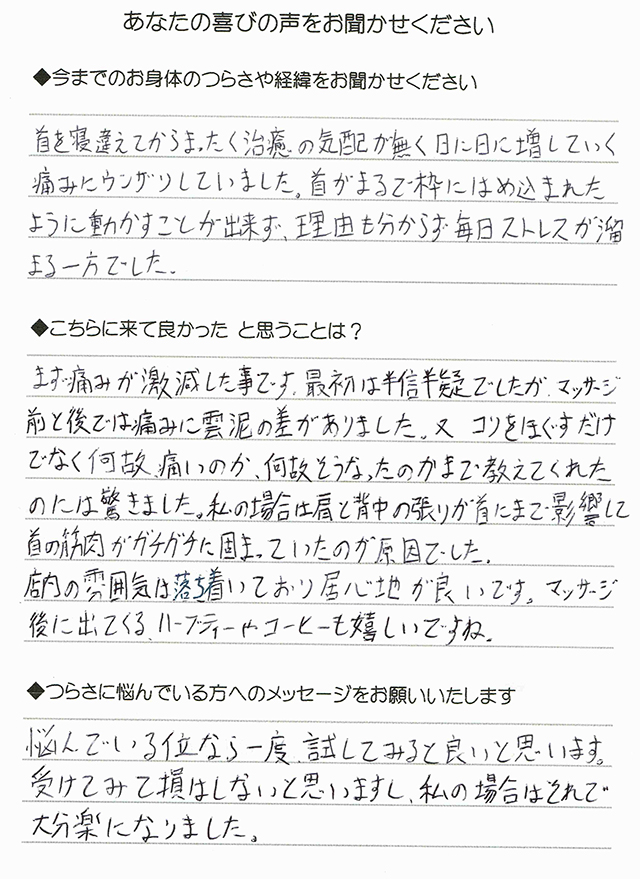 あなたの喜びの声をお聞かせください
◆今までのお身体のつらさや経緯をお聞かせください
首を寝違えてからまったく治癒の気配が無く日に日に増していく
痛みにウンザリしていました。首がまるで枠にはめ込まれた
ように動かすことが出来ず、理由も分からず毎日ストレスが溜
まる一方でした。
◆こちらに来て良かった と思うことは？
まず痛みが激減した事です。最初は半信半疑でしたが、マッサージ
前と後では痛みに雲泥の差がありました。又 コリをほぐすだけ
でなく何故、痛いのか、何故そうなったのかまで教えてくれた
のには驚きました。私の場合は肩と背中の張りが首にまで影響して
首の筋肉がガチガチに固まっていたのが原因でした。
店内の雰囲気は落ち着いており居心地が良いです。マッサージ
後に出てくる、ハーブティーやコーヒーも嬉しいですね。
◆つらさに悩んでいる方へのメッセージをお願いいたします
悩んでいる位なら一度、試してみると良いと思います。
受けてみて損はしないと思いますし、私の場合はそれで
大分楽になりました。